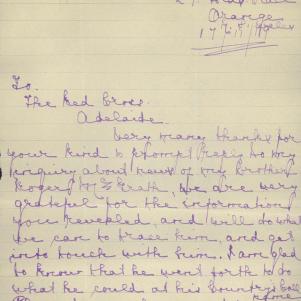 Orange
17.5.17
To.
The Red Cross.
Adelaide.
Very many thanks for
your kind & prompt reply to my
enquiry about news of my brother
Roger McGrath, we are very
grateful for the information
you revealed, and will do what
we can to trace him, and get
into touch with him. I am glad
to know that he went forth to do
what he could at his Country's Call